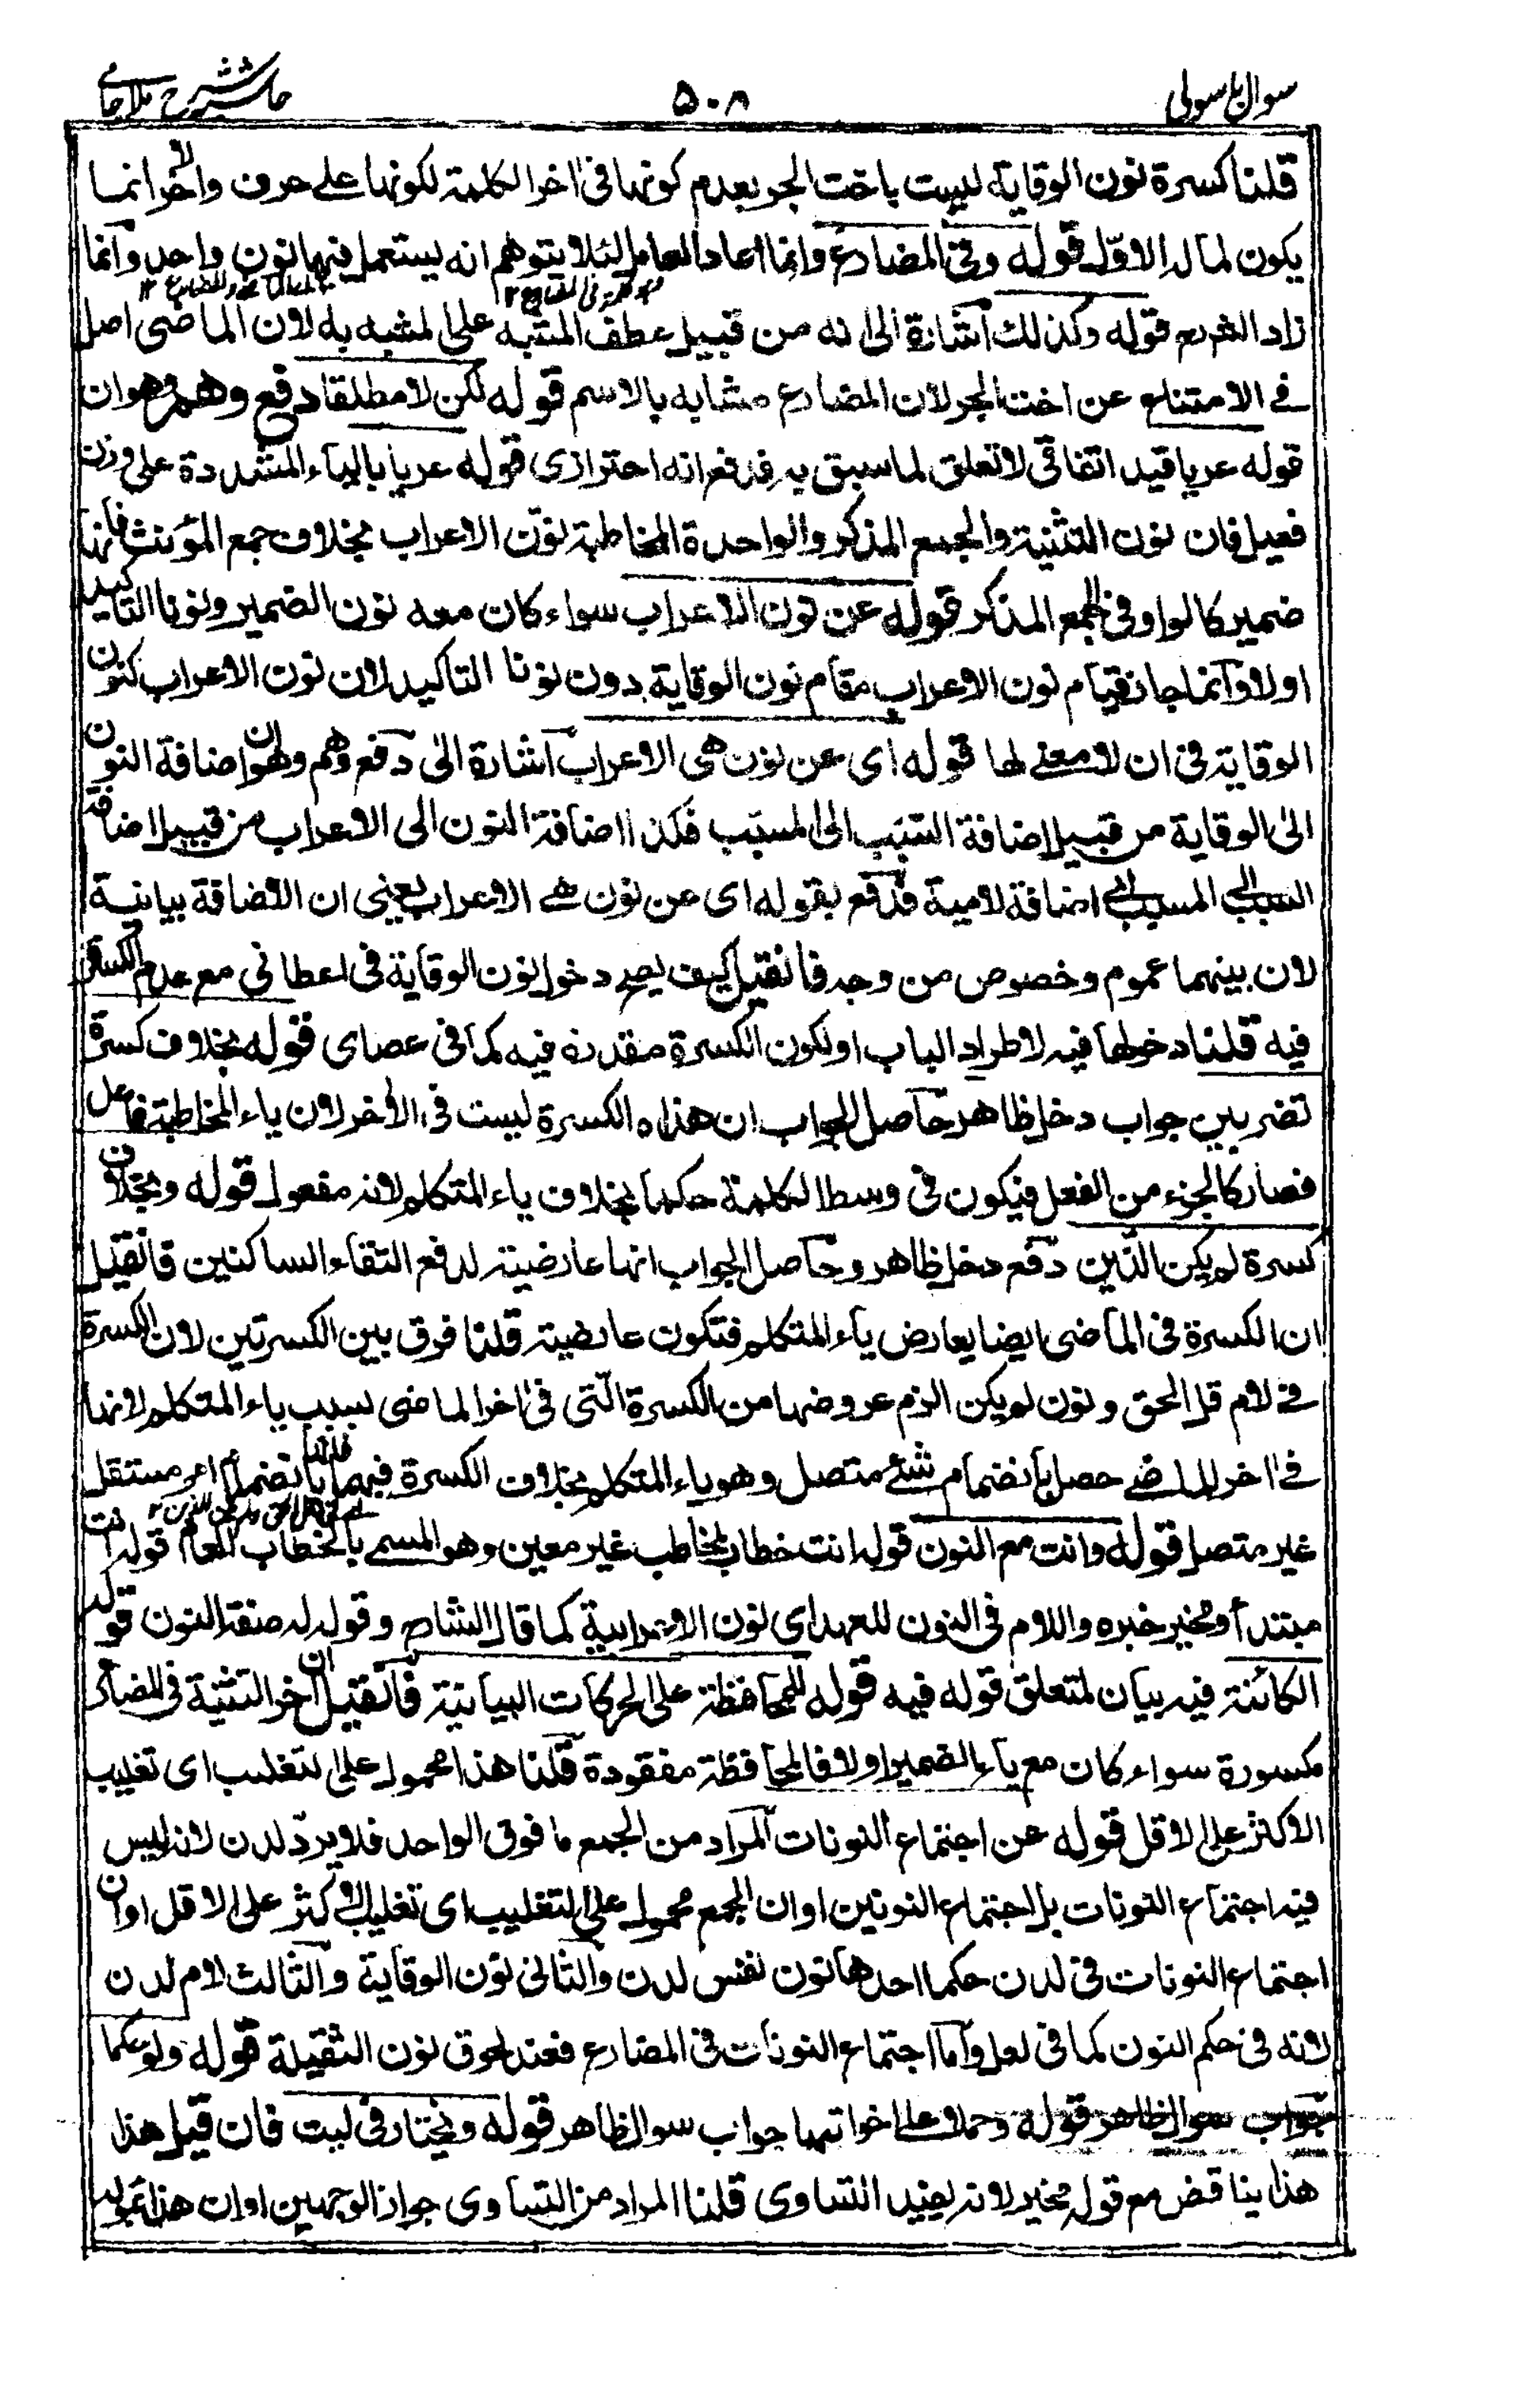 سوال باسولی ۵۰۸ حاشیہ شرح ملا جامی
قلنا كسرة نون الوقاية ليست باخت الجر بعدم كونها فی اخر الكلمة لكونها علے حرف والاخر انما
يكون لماله الاول قوله وفی المضارع وانما اعاد العامل لئلا يتوهم انه يستعمل فيهما نون واحد وانما
زاد الشرح قوله وكذلك اشارة الی انه من قبيل عطف المشبه علی المشبه به لان الماضی اصل
فے الامتناع عن اخت الجر لان المضارع مشابه بالاسم قوله لكن لا مطلقا دفع وهم وهو ان
قوله عريا قيد اتفاقی لا تعلق لما سبق به فدفع انه احترازی قوله عريا بالياء المشددة علی وزن
فعيل فان نون التثنية والجمع المذكر والواحدة المخاطبة نون الاعراب بخلاف جمع المؤنث فانها
ضمير كالواو فی الجمع المذكر قوله عن نون الاعراب سواء كان معه نون الضمير ونونا التاكيد
اولا وانما جاز قيام نون الاعراب مقام نون الوقاية دون نونا التاكيد لان نون الاعراب كنون
الوقاية فی ان لا معنے لها قوله ای عن نون هی الاعراب اشارة الی دفع وهم وهو ان اضافة النون
الی الوقاية من قبيل اضافة السبب الی المسبب فكذا اضافة النون الی الاعراب من قبيل اضافة
السبب الی المسبب ای اضافة لامية فدفع بقوله ای عن نون هے الاعراب يعنی ان الاضافة بيانية
لان بينهما عموم وخصوص من وجه فانقيل كيف يصح دخول نون الوقاية فی اعطانی مع عدم الكسرة
فيه قلنا دخولها فيه لاطراد الباب او لكون الكسرة مقدرة فيه كما فی عصای قوله بخلاف كسرة
تضربين جواب دخل ظاهر حاصل الجواب ان هذه الكسرة ليست فی الاخر لان ياء المخاطبة فاعل
فصار كالجزء من الفعل فيكون فی وسط الكلمة حكما بخلاف ياء المتكلم لانه مفعول قوله وبخلاف
كسرة لم يكن الذين دفع دخل ظاهر وحاصل الجواب انها عارضية لدفع التقاء الساكنين فانقيل
ان الكسرة فی الماضی ايضا يعارض ياء المتكلم فتكون عارضية قلنا فرق بين الكسرتين لان الكسرة
فے لام قل الحق ونون لم يكن الزم عروضها من الكسرة التی فی اخر الماضی بسبب ياء المتكلم لانها
فے اخر الماضے حصل بانضمام شئے متصل وهو ياء المتكلم بخلاف الكسرة فيهما بانضمام امر مستقل
غير متصل قوله وانت مع النون قوله انت خطاب لمخاطب غير معين وهو المسمے بالخطاب العام قوله انت
مبتدأ ومخير خبره واللام فی النون للعهد ای نون الاعرابية كما قال الشارح وقوله له صفة النون قوله
الكائنة فيه بيان لمتعلق قوله فيه قوله للمحافظة علی الحركات البيانية فانقيل ان اخر التثنية فی المضارع
مكسورة سواء كان مع ياء الضمير اولا فالمحافظة مفقودة قلنا هذا محمول علی التغليب ای تغليب
الاكثر علی الاقل قوله عن اجتماع النونات المراد من الجمع ما فوق الواحد فلا يرد لدن لانه ليس
فيه اجتماع النونات بل اجتماع النونين او ان الجمع محمول علی التغليب ای تغليب الاكثر علی الاقل او ان
اجتماع النونات فی لدن حكما احدها نون نفس لدن والثانی نون الوقاية والثالث لام لدن
لانه فی حكم النون كما فی لعل واما اجتماع النونات فی المضارع فعند لحوق نون الثقيلة قوله ولو حكما
جواب سوال ظاهر قوله وحملا علے اخواتها جواب سوال ظاهر قوله ويختار فی ليت فان قيل هذا
هذا يناقض مع قوله مخير لانه يفيد التساوی قلنا المراد من التساوی جواز الوجهين او ان هذا